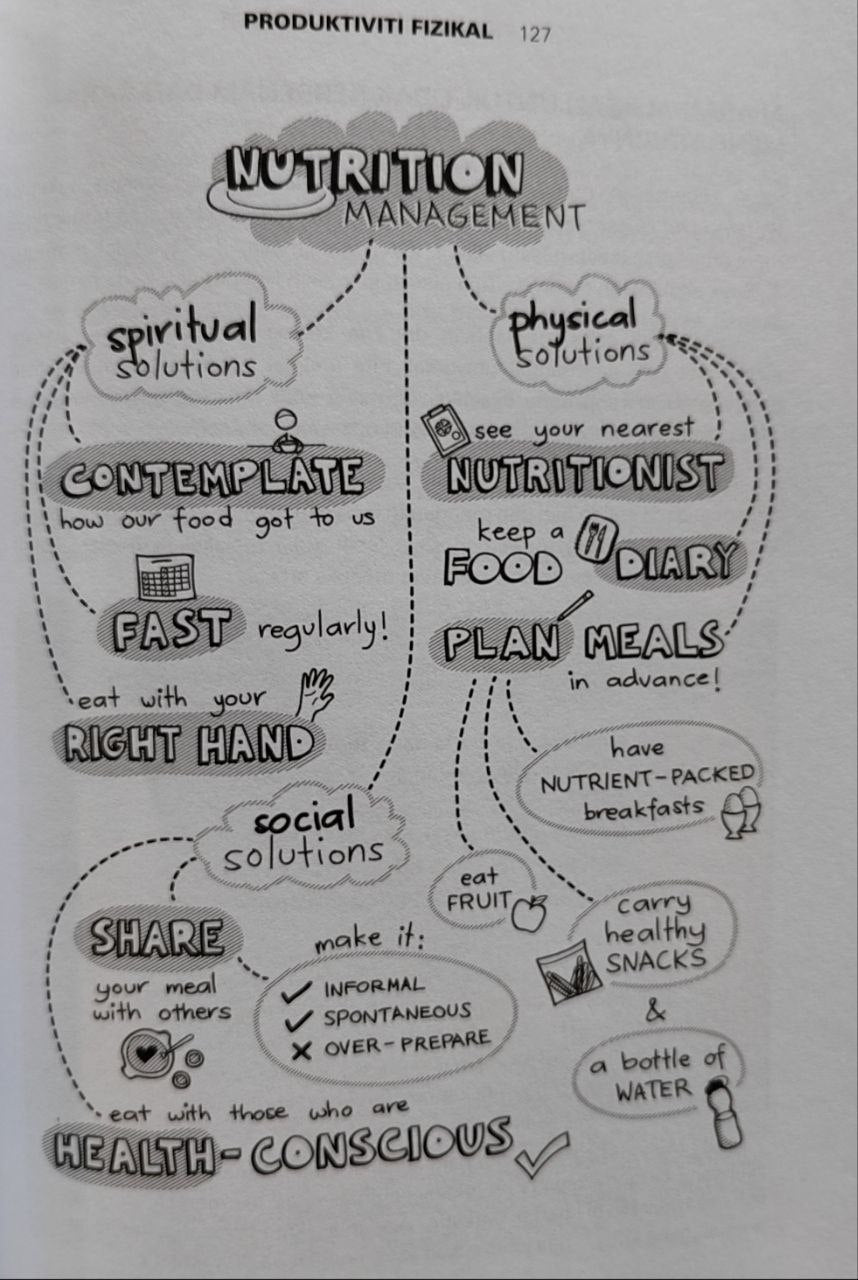 PRODUKTIVITI FIZIKAL 127
NUTRITION
MANAGEMENT
spiritual
solutions
CONTEMPLATE
how our food got to us
FAST regularly!
eat with your
RIGHT HAND
physical
solutions
see your nearest
NUTRITIONIST
keep a
FOOD DIARY
PLAN MEALS
in advance!
have
NUTRIENT-PACKED
breakfasts
eat
FRUIT
carry
healthy
SNACKS
&
a bottle of
WATER
social
solutions
SHARE
your meal
with others
make it:
INFORMAL
SPONTANEOUS
OVER-PREPARE
eat with those who are
HEALTH-CONSCIOUS